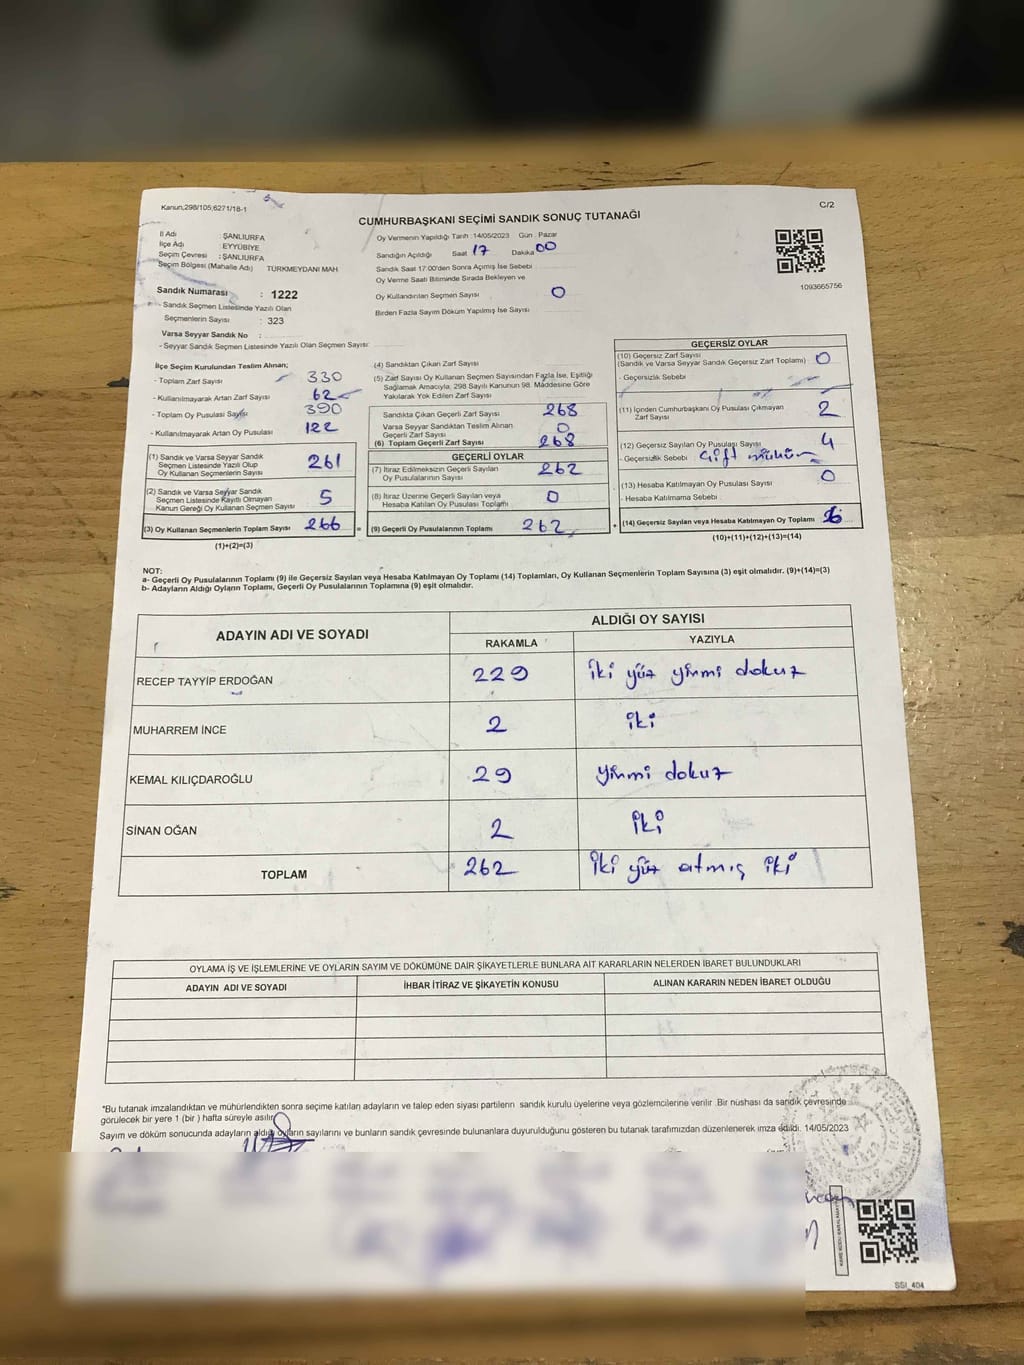 Kanun;298/105;6271/18-1
C/2
CUMHURBAŞKANI SEÇİMİ SANDIK SONUÇ TUTANAĞI
İl Adı : ŞANLIURFA
İlçe Adı : EYYÜBİYE
Seçim Çevresi : ŞANLIURFA
Seçim Bölgesi (Mahalle Adı) TURKMEYDANI MAH
Sandık Numarası : 1222
- Sandık Seçmen Listesinde Yazılı Olan
Seçmenlerin Sayısı : 323
Varsa Seyyar Sandık No :
- Seyyar Sandık Seçmen Listesinde Yazılı Olan Seçmen Sayısı:
Oy Vermenin Yapıldığı Tarih :14/05/2023 Gün : Pazar
Sandığın Açıldığı Saat 17 Dakika 00
Sandık Saat 17:00'den Sonra Açımış İse Sebebi
Oy Verme Saati Bitiminde Sırada Bekleyen ve
Oy Kullandırılan Seçmen Sayısı 0
Birden Fazla Sayım Döküm Yapılmış İse Sayısı
1093665756
İlçe Seçim Kurulundan Teslim Alınan;
- Toplam Zarf Sayısı 330
- Kullanılmayarak Artan Zarf Sayısı 62
- Toplam Oy Pusulası Sayısı 390
- Kullanılmayarak Artan Oy Pusulası 122
(1) Sandık ve Varsa Seyyar Sandık
Seçmen Listesinde Yazılı Olup
Oy Kullanan Seçmenlerin Sayısı 261
(2) Sandık ve Varsa Seyyar Sandık
Seçmen Listesinde Kayıtlı Olmayan
Kanun Gereği Oy Kullanan Seçmen Sayısı 5
(3) Oy Kullanan Seçmenlerin Toplam Sayısı 266 =
(1)+(2)=(3)
(4) Sandıktan Çıkan Zarf Sayısı
(5) Zarf Sayısı Oy Kullanan Seçmen Sayısından Fazla İse, Eşitliği
Sağlamak Amacıyla, 298 Sayılı Kanunun 98. Maddesine Göre
Yakılarak Yok Edilen Zarf Sayısı
Sandıkta Çıkan Geçerli Zarf Sayısı 268
Varsa Seyyar Sandıktan Teslim Alınan
Geçerli Zarf Sayısı 0
(6) Toplam Geçerli Zarf Sayısı 268
GEÇERLİ OYLAR
(7) İtiraz Edilmeksizin Geçerli Sayılan
Oy Pusulasının Sayısı 262
(8) İtiraz Üzerine Geçerli Sayılan veya
Hesaba Katılan Oy Pusulası Toplamı 0
(9) Geçerli Oy Pusulalarının Toplamı 262 +
GEÇERSİZ OYLAR
(10) Geçersiz Zarf Sayısı
(Sandık ve Varsa Seyyar Sandık Geçersiz Zarf Toplamı) 0
- Geçersizlik Sebebi
(11) İçinden Cumhurbaşkanı Oy Pusulası Çıkmayan
Zarf Sayısı 2
(12) Geçersiz Sayılan Oy Pusulası Sayısı 4
- Geçersizlik Sebebi Çift mühür
(13) Hesaba Katılmayan Oy Pusulası Sayısı 0
- Hesaba Katılmama Sebebi
(14) Geçersiz Sayılan veya Hesaba Katılmayan Oy Toplamı 6
(10)+(11)+(12)+(13)=(14)
NOT:
a- Geçerli Oy Pusulalarının Toplamı (9) ile Geçersiz Sayılan veya Hesaba Katılmayan Oy Toplamı (14) Toplamları, Oy Kullanan Seçmenlerin Toplam Sayısına (3) eşit olmalıdır. (9)+(14)=(3)
b- Adayların Aldığı Oyların Toplamı, Geçerli Oy Pusulalarının Toplamına (9) eşit olmalıdır.
ADAYIN ADI VE SOYADI ALDIĞI OY SAYISI
RAKAMLA YAZIYLA
RECEP TAYYİP ERDOĞAN 229 iki yüz yirmi dokuz
MUHARREM İNCE 2 iki
KEMAL KILIÇDAROĞLU 29 yirmi dokuz
SİNAN OĞAN 2 iki
TOPLAM 262 iki yüz atmış iki
OYLAMA İŞ VE İŞLEMLERİNE VE OYLARIN SAYIM VE DÖKÜMÜNE DAİR ŞİKAYETLERLE BUNLARA AİT KARARLARIN NELERDEN İBARET BULUNDUKLARI
ADAYIN ADI VE SOYADI İHBAR İTİRAZ VE ŞİKAYETİN KONUSU ALINAN KARARIN NEDEN İBARET OLDUĞU
*Bu tutanak imzalandıktan ve mühürlendikten sonra seçime katılan adayların ve talep eden siyasi partilerin sandık kurulu üyelerine veya gözlemcilerine verilir. Bir nüshası da sandık çevresinde
görülecek bir yere 1 (bir ) hafta süreyle asılır.
Sayım ve döküm sonucunda adayların aldığı oyların sayılarını ve bunların sandık çevresinde bulunanlara duyurulduğunu gösteren bu tutanak tarafımızdan düzenlenerek imza edildi. 14/05/2023
SSI_404